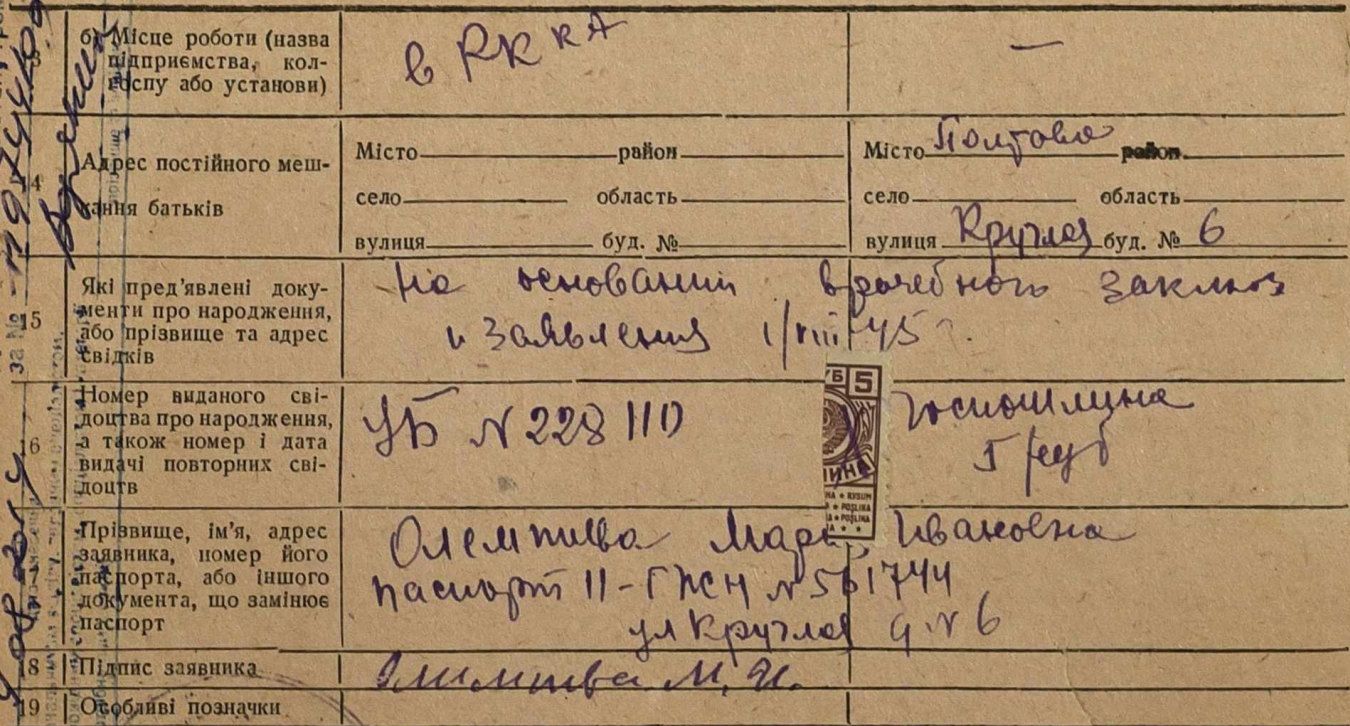 б) Місце роботи (назва
підприємства, кол-
госпу або установи)
в РККА
—
14
Адрес постійного меш-
кання батьків
Місто район
село область
вулиця буд. №
Місто Полтава район
село область
вулиця Круглая буд. № 6
15
Які пред'явлені доку-
менти про народження,
або прізвище та адрес
свідків
На основании врачебного заключ
и заявления 1/VIII-45
16
Номер виданого сві-
доцтва про народження,
а також номер і дата
видачі повторних сві-
доцтв
УБ N 228110
госпошлина
5 руб
5
17
Прізвище, ім'я, адрес
заявника, номер його
паспорта, або іншого
документа, що замінює
паспорт
Мария Ивановна
паспорт II-ГЖН N 561744
ул Круглая д. N 6
18
Підпис заявника
М. И.
19
Особливі позначки
за №